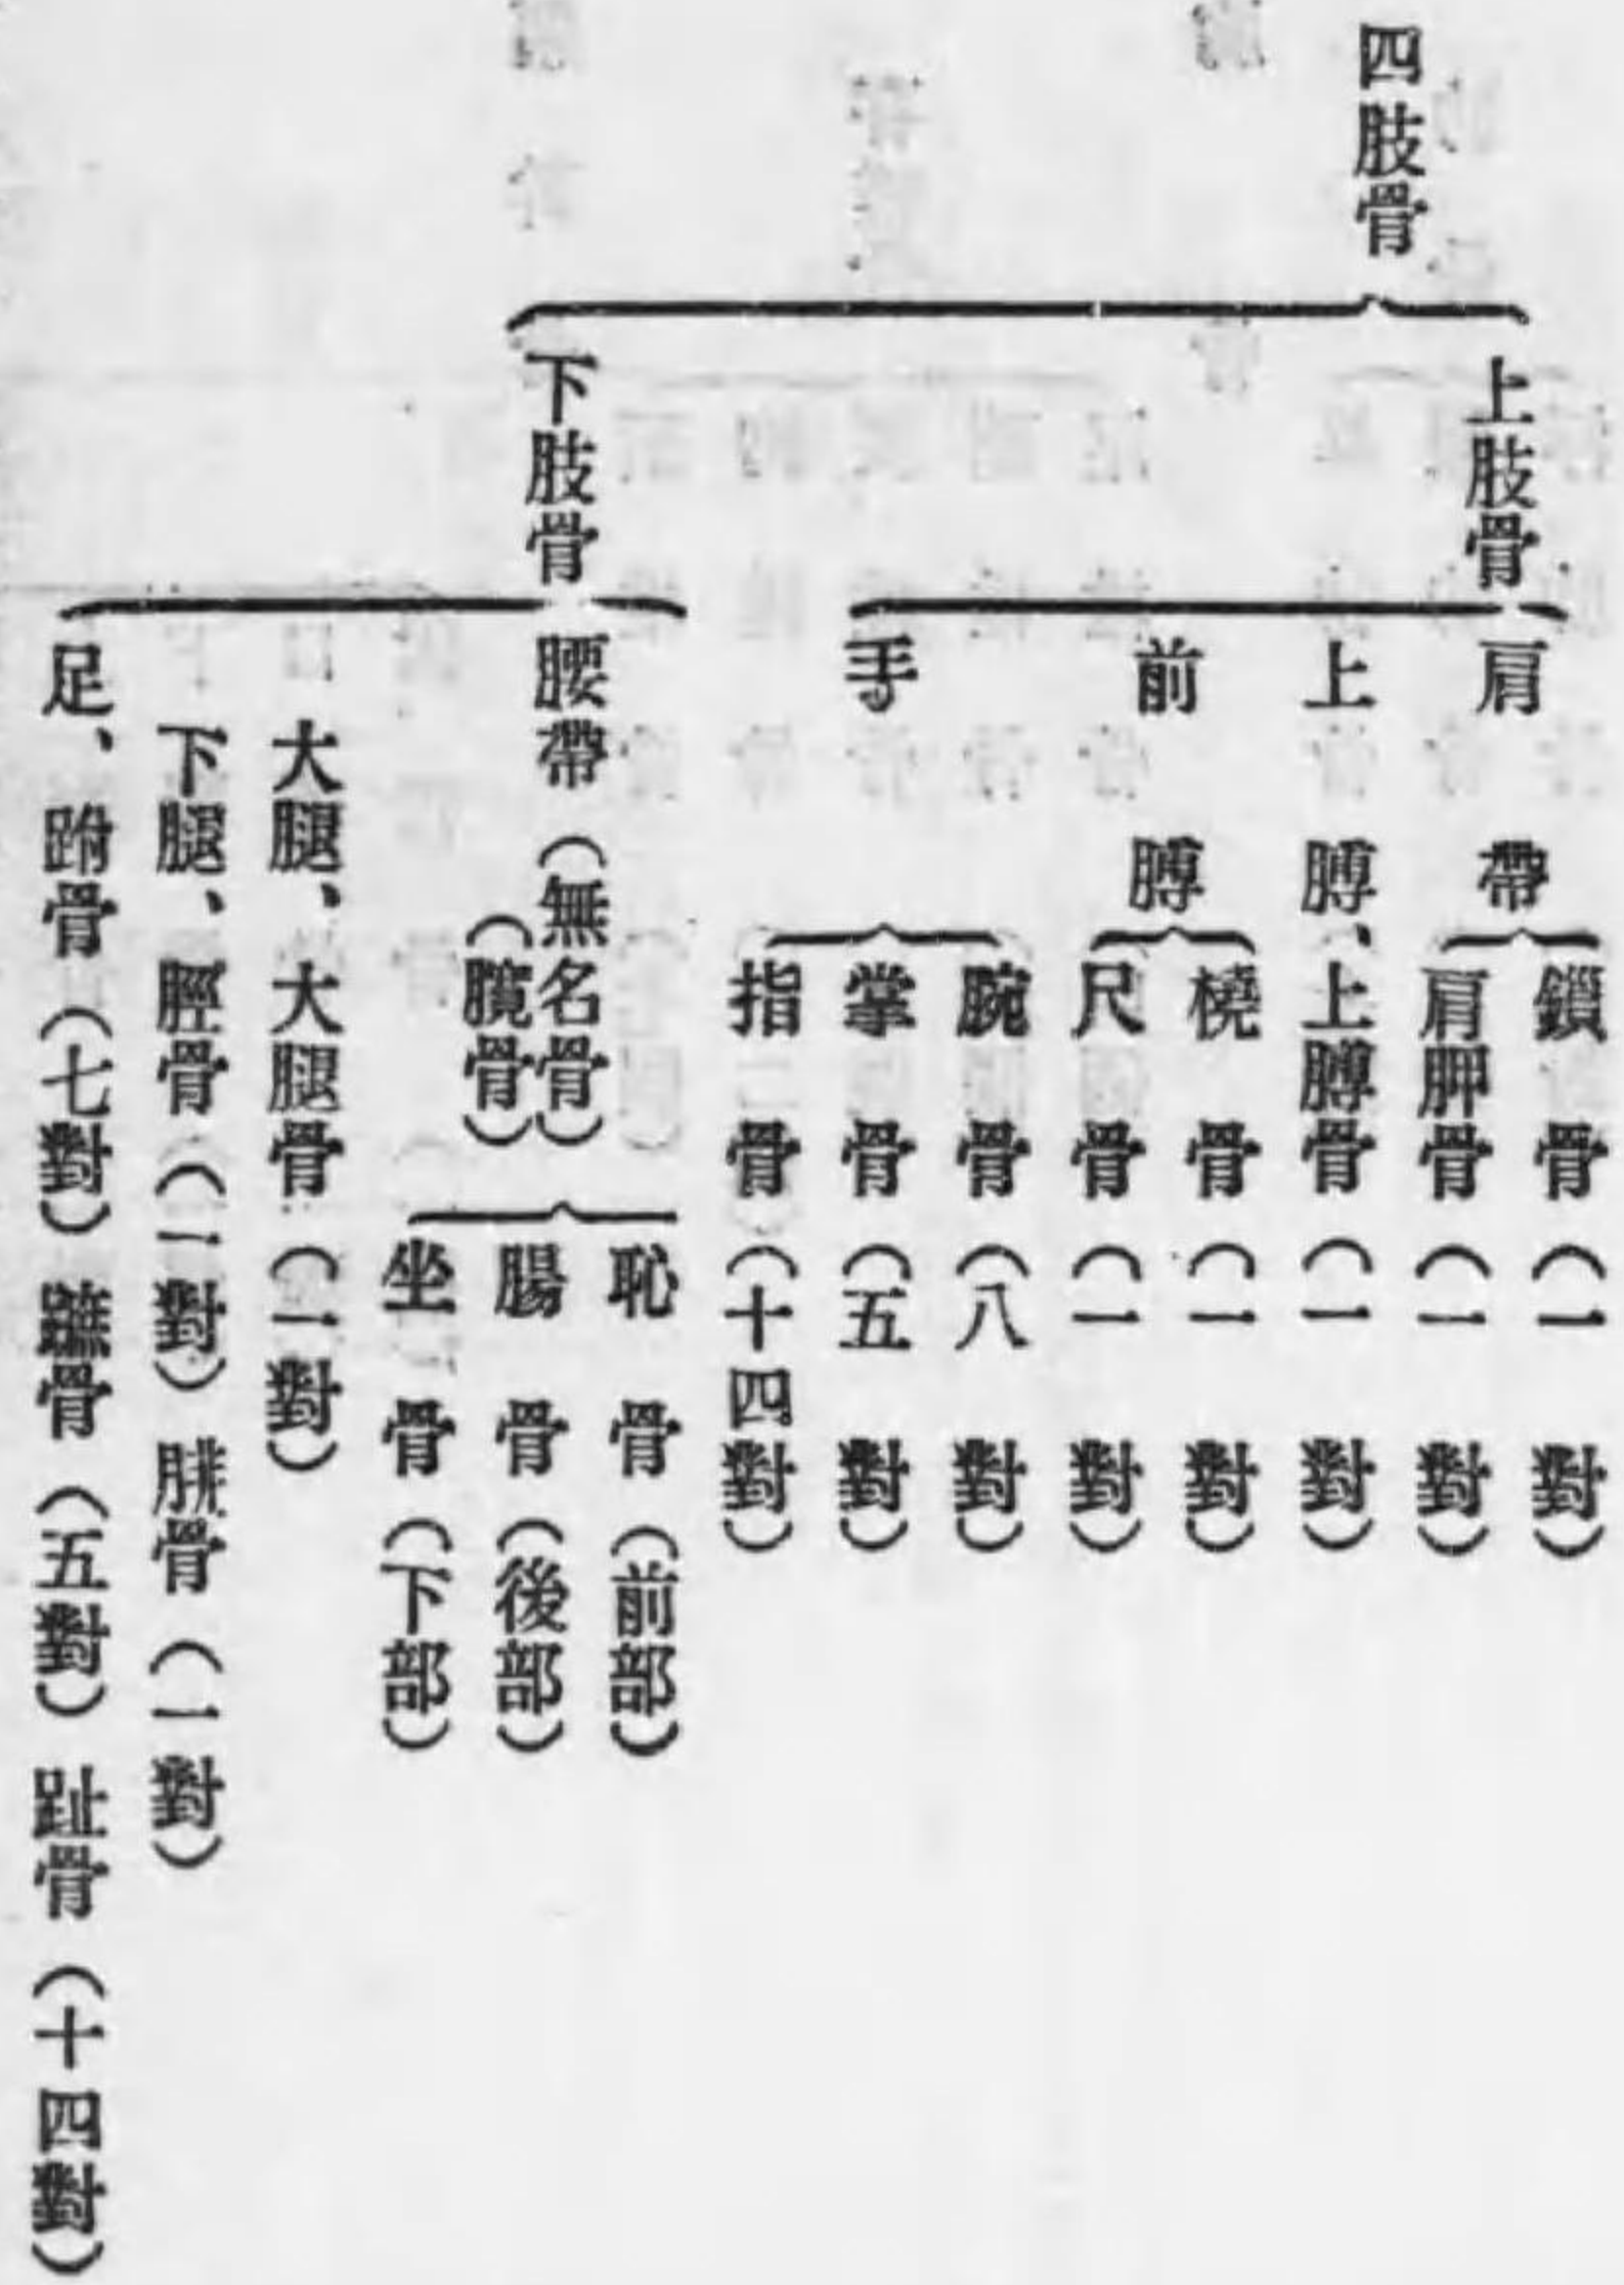 四肢骨
上肢骨
肩帶
鎖骨(一對)
肩胛骨(一對)
上膊、上膊骨(一對)
前膊
橈骨(一對)
尺骨(一對)
手
腕骨(八對)
掌骨(五對)
指骨(十四對)
下肢骨
腰帶(無名骨)
(臗骨)
恥骨(前部)
腸骨(後部)
坐骨(下部)
大腿、大腿骨(一對)
下腿、脛骨(一對)腓骨(一對)
足、跗骨(七對)蹠骨(五對)趾骨(十四對)